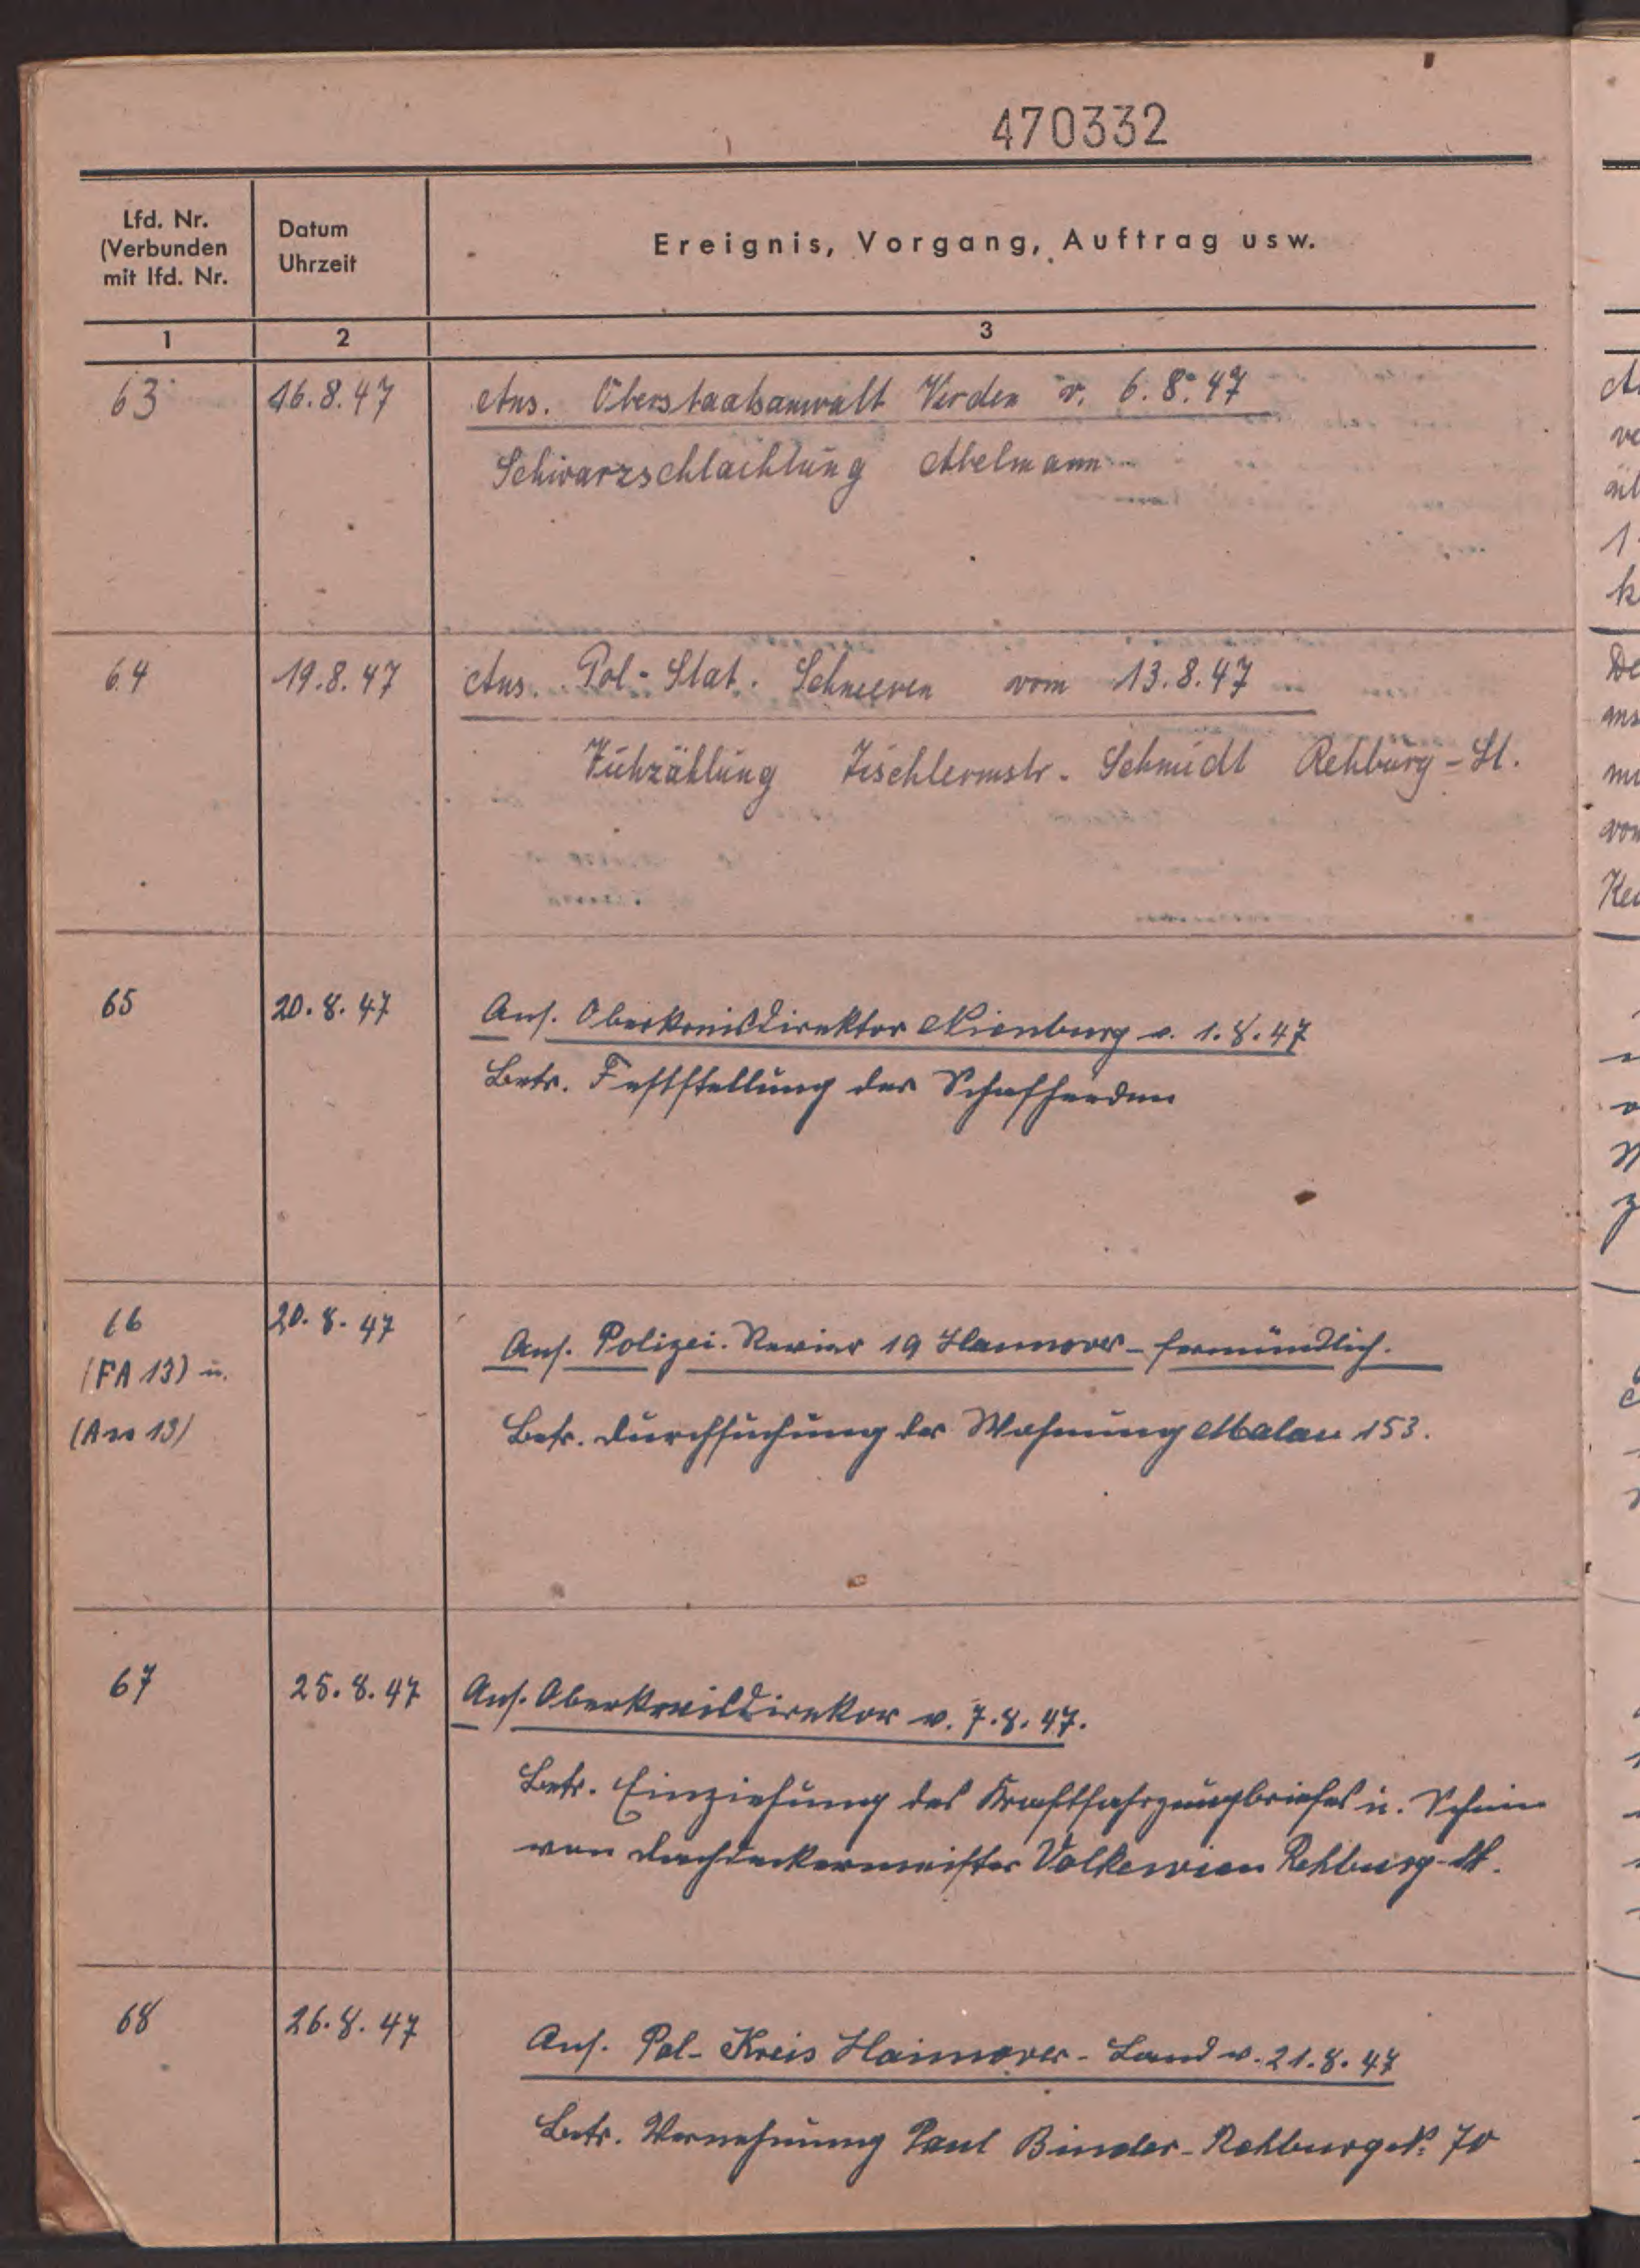 470332
Lfd. Nr.
(Verbunden
mit lfd. Nr.
Datum
Uhrzeit
Ereignis, Vorgang, Auftrag usw.
1
2
3
63
16.8.47
Ans. Oberstaatsanwalt Verden v. 6.8.47
Schwarzschlachtung Abelmann
64
19.8.47
Ans. Pol-Stat. Schneeren vom 13.8.47
Tischlermstr. Schmidt Rehburg-St.
65
20.8.47
Ans. Oberkreisdirektor Nienburg v. 1.8.47
Betr. Feststellung der Schafherden
66
(FA 13) u.
20.8.47
Ans. Polizei-Revier 19 Hannover - fernmündlich.
Betr. Durchsuchung der Wohnung 153.
67
25.8.47
Ans. Oberkreisdirekor v. 7.8.47.
Betr. Einziehung des Kraftfahrzeugbriefes u. Schein
von Dachdeckermeister Volkewien Rehburg-St.
68
26.8.47
Ans. Pol-Kreis Hannover-Land v. 21.8.47
Betr. Vernehmung Paul Binder-Rehburg 70